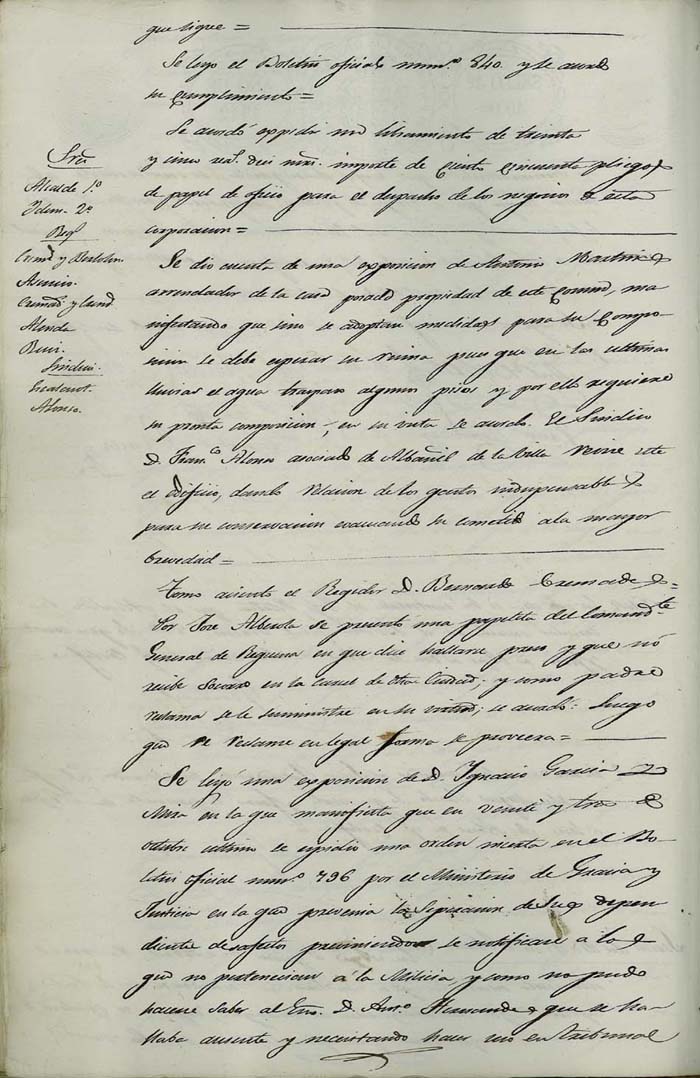 que sigue =
Se leyo el Boletin oficial num.º 840. y se acordó
su cumplimiento =
Se acordó expedir un libramiento de treinta
y cinco rs. diez mrs. importe de ciento cincuenta pliegos
de papel de oficio para el despacho de los negocios de esta
corporacion =
Sres
Alcalde 1.º
Idem. 2º
Reg.
y Bertolin
Asensio
Alenda
Ruiz.
Sindicos
Alonso.
Se dio cuenta de una exposicion de Antonio Martinez
arrendador de la casa posada propiedad de este comun, ma
nifestando que sino se adoptan medidas para su compo
sicion se debe esperar su ruina pues que en las ultimas
lluvias el agua traspaso algunos pisos y por ello requiere
su pronta composicion; en su vista se acordó. El Sindico
D. Fran.co Alonso asociado de Albañil de la Villa revise este
el edificio, dando relacion de los gastos indispensables
para su conservacion evacuando su cometido a la mayor
brevedad =
Tomo asiento el Regidor D. Bernardo Cremades
Por Jose Alberola se presentó una papeleta del Comandte
General de Requena en que dice hallarse preso y que nó
recibe socorro en la carcel de otra Ciudad; y como padre
reclama se le suministre en su; se acordó: Luego
que se reclame en legal forma se proveera =
Se leyó una exposicion de D. Ignacio Garcia
Mira en la que manifiesta que en veinte y tres de
octubre ultimo se espidio una orden inserta en el Bo
letin oficial num.º 796 por el Ministerio de Gracia y
Justicia en la que prevenia la separacion de sus depen
dientes desafectos previniendo se notificase á los
que no pertenecian á la Milicia y como no pudo
hacerse saber al D. Ant.º Hernandez que se ha
llaba ausente y necesitando hacer uso en tribunal